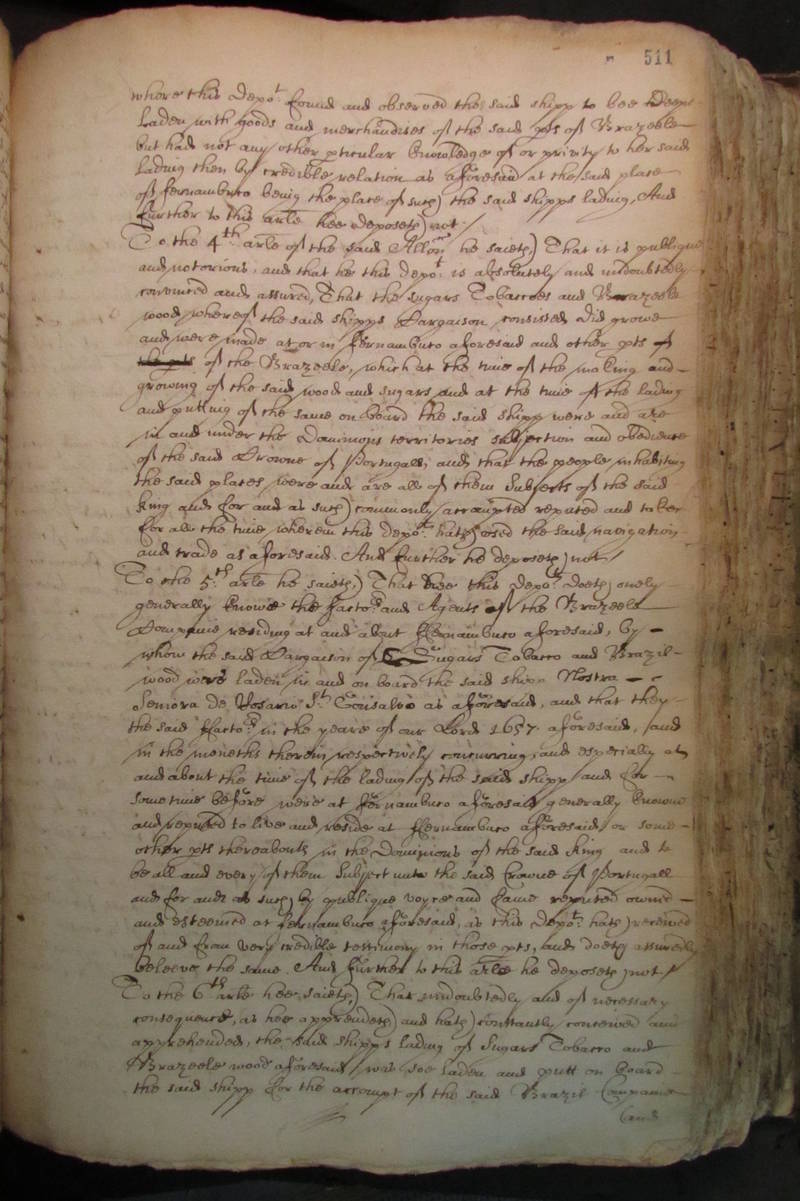 511
where this Depo.t found and observed the said shipp to bee Deepe
Laden with goods and merchandizes of the said pts of Brazeele
but had not any other pticular knowledge of or privity to her said
lading then by credible relation as aforesaid at the said place
of fernambuco being the place of such the said shipps lading, And
further to this arle hee deposeth not.
To the 4th arle of the said Allon he saieth, That it is publique
and notorious, and that he this depo.t is absolutely and undoubtedly
convinced and assured, That the sugars Tobaccoes and Brazeele
wood whereof the said shipps Cargaison consisted, did growe
and were made at or in ffernambuco aforesaid and other pts of
the pts of the Brazeele, which at the time of the making and
growing of the said wood and sugars and at the time of the lading
and putting of the same on board the said shipp were and are
in and under the Dominions territories subjection and obedience
of the said Crowne of Portugall, and that the people inhabiting
the said places were and are all of them Subjects of the said
king and for and as such commonly accompted reputed and taken
for all the time wherein this depo.t hath used the said navigation
and trade as aforesaid. And further he deposeth not/
To the 5.th arle he saieth, That hee this depo.t doeth onely
generally knowe the factors and Agents of the Brazeele
Companie residing at and about ffernambuco aforesaid, by
whom the said Cargaison of Sugars Tobacco and Brazil
wood were laden in and on board the said shipp Nostra
Seniora de Rosario St. Gonsalvo as aforesaid, and that they
the said ffactors in the yeare of our Lord 1657 aforesaid, and
in the moneths therein respectively concurring, and especially at
and about the time of the lading of the said shipp and for
some time before were at fernambuco aforesaid generally knowne
and reputed to live and reside at ffernambuco aforesaid, or some
other pts thereabouts in the Dominions of the said king and to
be all and every of them Subject unto the said Crowne of Portugall
and for and as such by publique voyce and fame reputed owned
and esteemed at fernambuco aforesaid, as this depo.t hath received
of and from very credible testimony in those pts, and doeth assuredly
beleeve the same. And further to this arle he deposeth not/
To the 6th arle hee saieth, That undoubtedly and of necessary
consequence, as hee apprendeth and hath constantly conceived and
apprehended, the said shipps lading of Sugars Tobacco and
Brazeele wood aforesaid was soe laden and putt on board
the said shipp for the accompt of the said Brazil Companie
(and